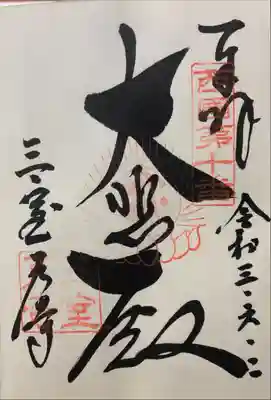 奉拝
西国第十番
令和三・六・一二
大悲殿
三室戸寺